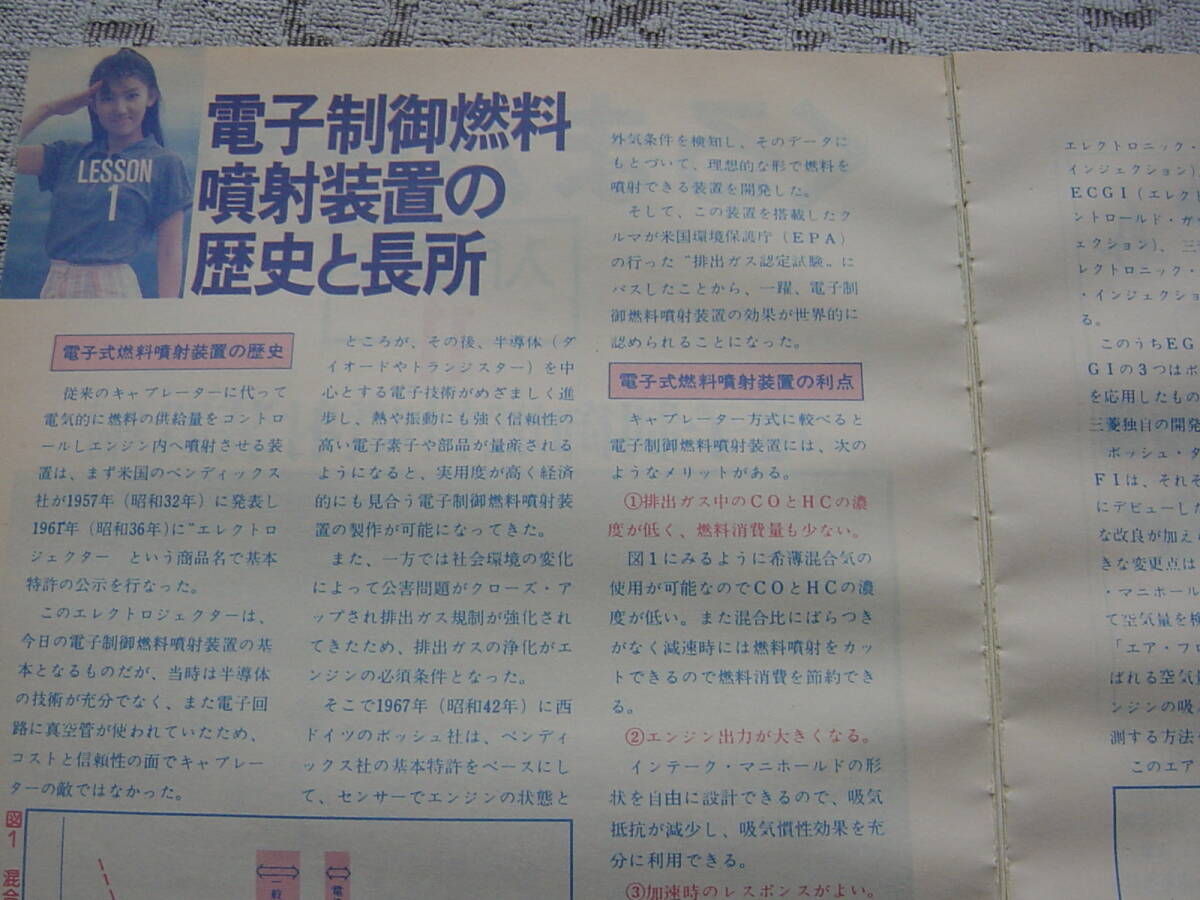 LESSON
1
電子制御燃料
噴射装置の
歴史と長所
電子式燃料噴射装置の歴史
従来のキャブレーターに代って
電気的に燃料の供給量をコントロ
ールしエンジン内へ噴射させる装
置は、まず米国のベンディックス
社が1957年（昭和32年）に発表し
1961年（昭和36年）に“エレクトロ
ジェクター　という商品名で基本
特許の公示を行なった。
このエレクトロジェクターは、
今日の電子制御燃料噴射装置の基
本となるものだが、当時は半導体
の技術が充分でなく、また電子回
路に真空管が使われていたため、
コストと信頼性の面でキャブレー
ターの敵ではなかった。
ところが、その後、半導体（ダ
イオードやトランジスター）を中
心とする電子技術がめざましく進
歩し、熱や振動にも強く信頼性の
高い電子素子や部品が量産される
ようになると、実用度が高く経済
的にも見合う電子制御燃料噴射装
置の製作が可能になってきた。
また、一方では社会環境の変化
によって公害問題がクローズ・ア
ップされ排出ガス規制が強化され
てきたため、排出ガスの浄化がエ
ンジンの必須条件となった。
そこで1967年（昭和42年）に西
ドイツのボッシュ社は、ベンディ
ックス社の基本特許をベースにし
て、センサーでエンジンの状態と
外気条件を検知し、そのデータに
もとづいて、理想的な形で燃料を
噴射できる装置を開発した。
そして、この装置を搭載したク
ルマが米国環境保護庁（EPA）
の行った“排出ガス認定試験〟に
パスしたことから、一躍、電子制
御燃料噴射装置の効果が世界的に
認められることになった。
電子式燃料噴射装置の利点
キャブレーター方式に較べると
電子制御燃料噴射装置には、次の
ようなメリットがある。
①排出ガス中のCOとHCの濃
度が低く、燃料消費量も少ない。
図1にみるように希薄混合気の
使用が可能なのでCOとHCの濃
度が低い。また混合比にばらつき
がなく減速時には燃料噴射をカッ
トできるので燃料消費を節約でき
る。
②エンジン出力が大きくなる。
インテーク・マニホールドの形
状を自由に設計できるので、吸気
抵抗が減少し、吸気慣性効果を充
分に利用できる。
③加速時のレスポンスがよい。
図1 混合
一般
電
エレクトロニック・
インジェクション)
ECGI（エレク
ントロールド・ガ
ェクション)、三
レクトロニック・
・インジェクショ
る。
このうちEG
GIの3つはボ
を応用したもの
三菱独自の開発
ボッシュ・タ
FIは、それぞ
にデビューした
な改良が加え
きな変更点は
・マニホール
て空気量を検
「エア・フロ
ばれる空気量
ンジンの吸
測する方法
このエア